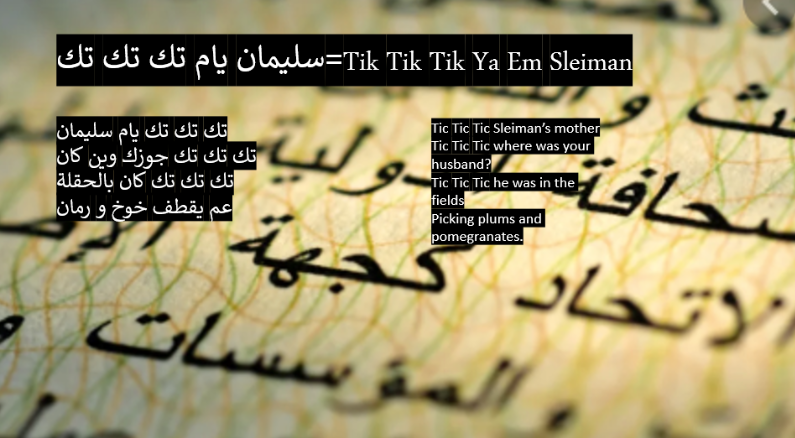 سليمان يام تك تك تك=Tik Tik Tik Ya Em Sleiman
تك تك تك يام سليمان
تك تك تك جوزك وين كان
تك تك تك كان بالحقلة
عم يقطف خوخ و رمان
Tic Tic Tic Sleiman's mother
Tic Tic Tic where was your
husband?
Tic Tic Tic he was in the
fields
Picking plums and
pomegranates.
الاتحاد كجبهة
و المؤسسات و